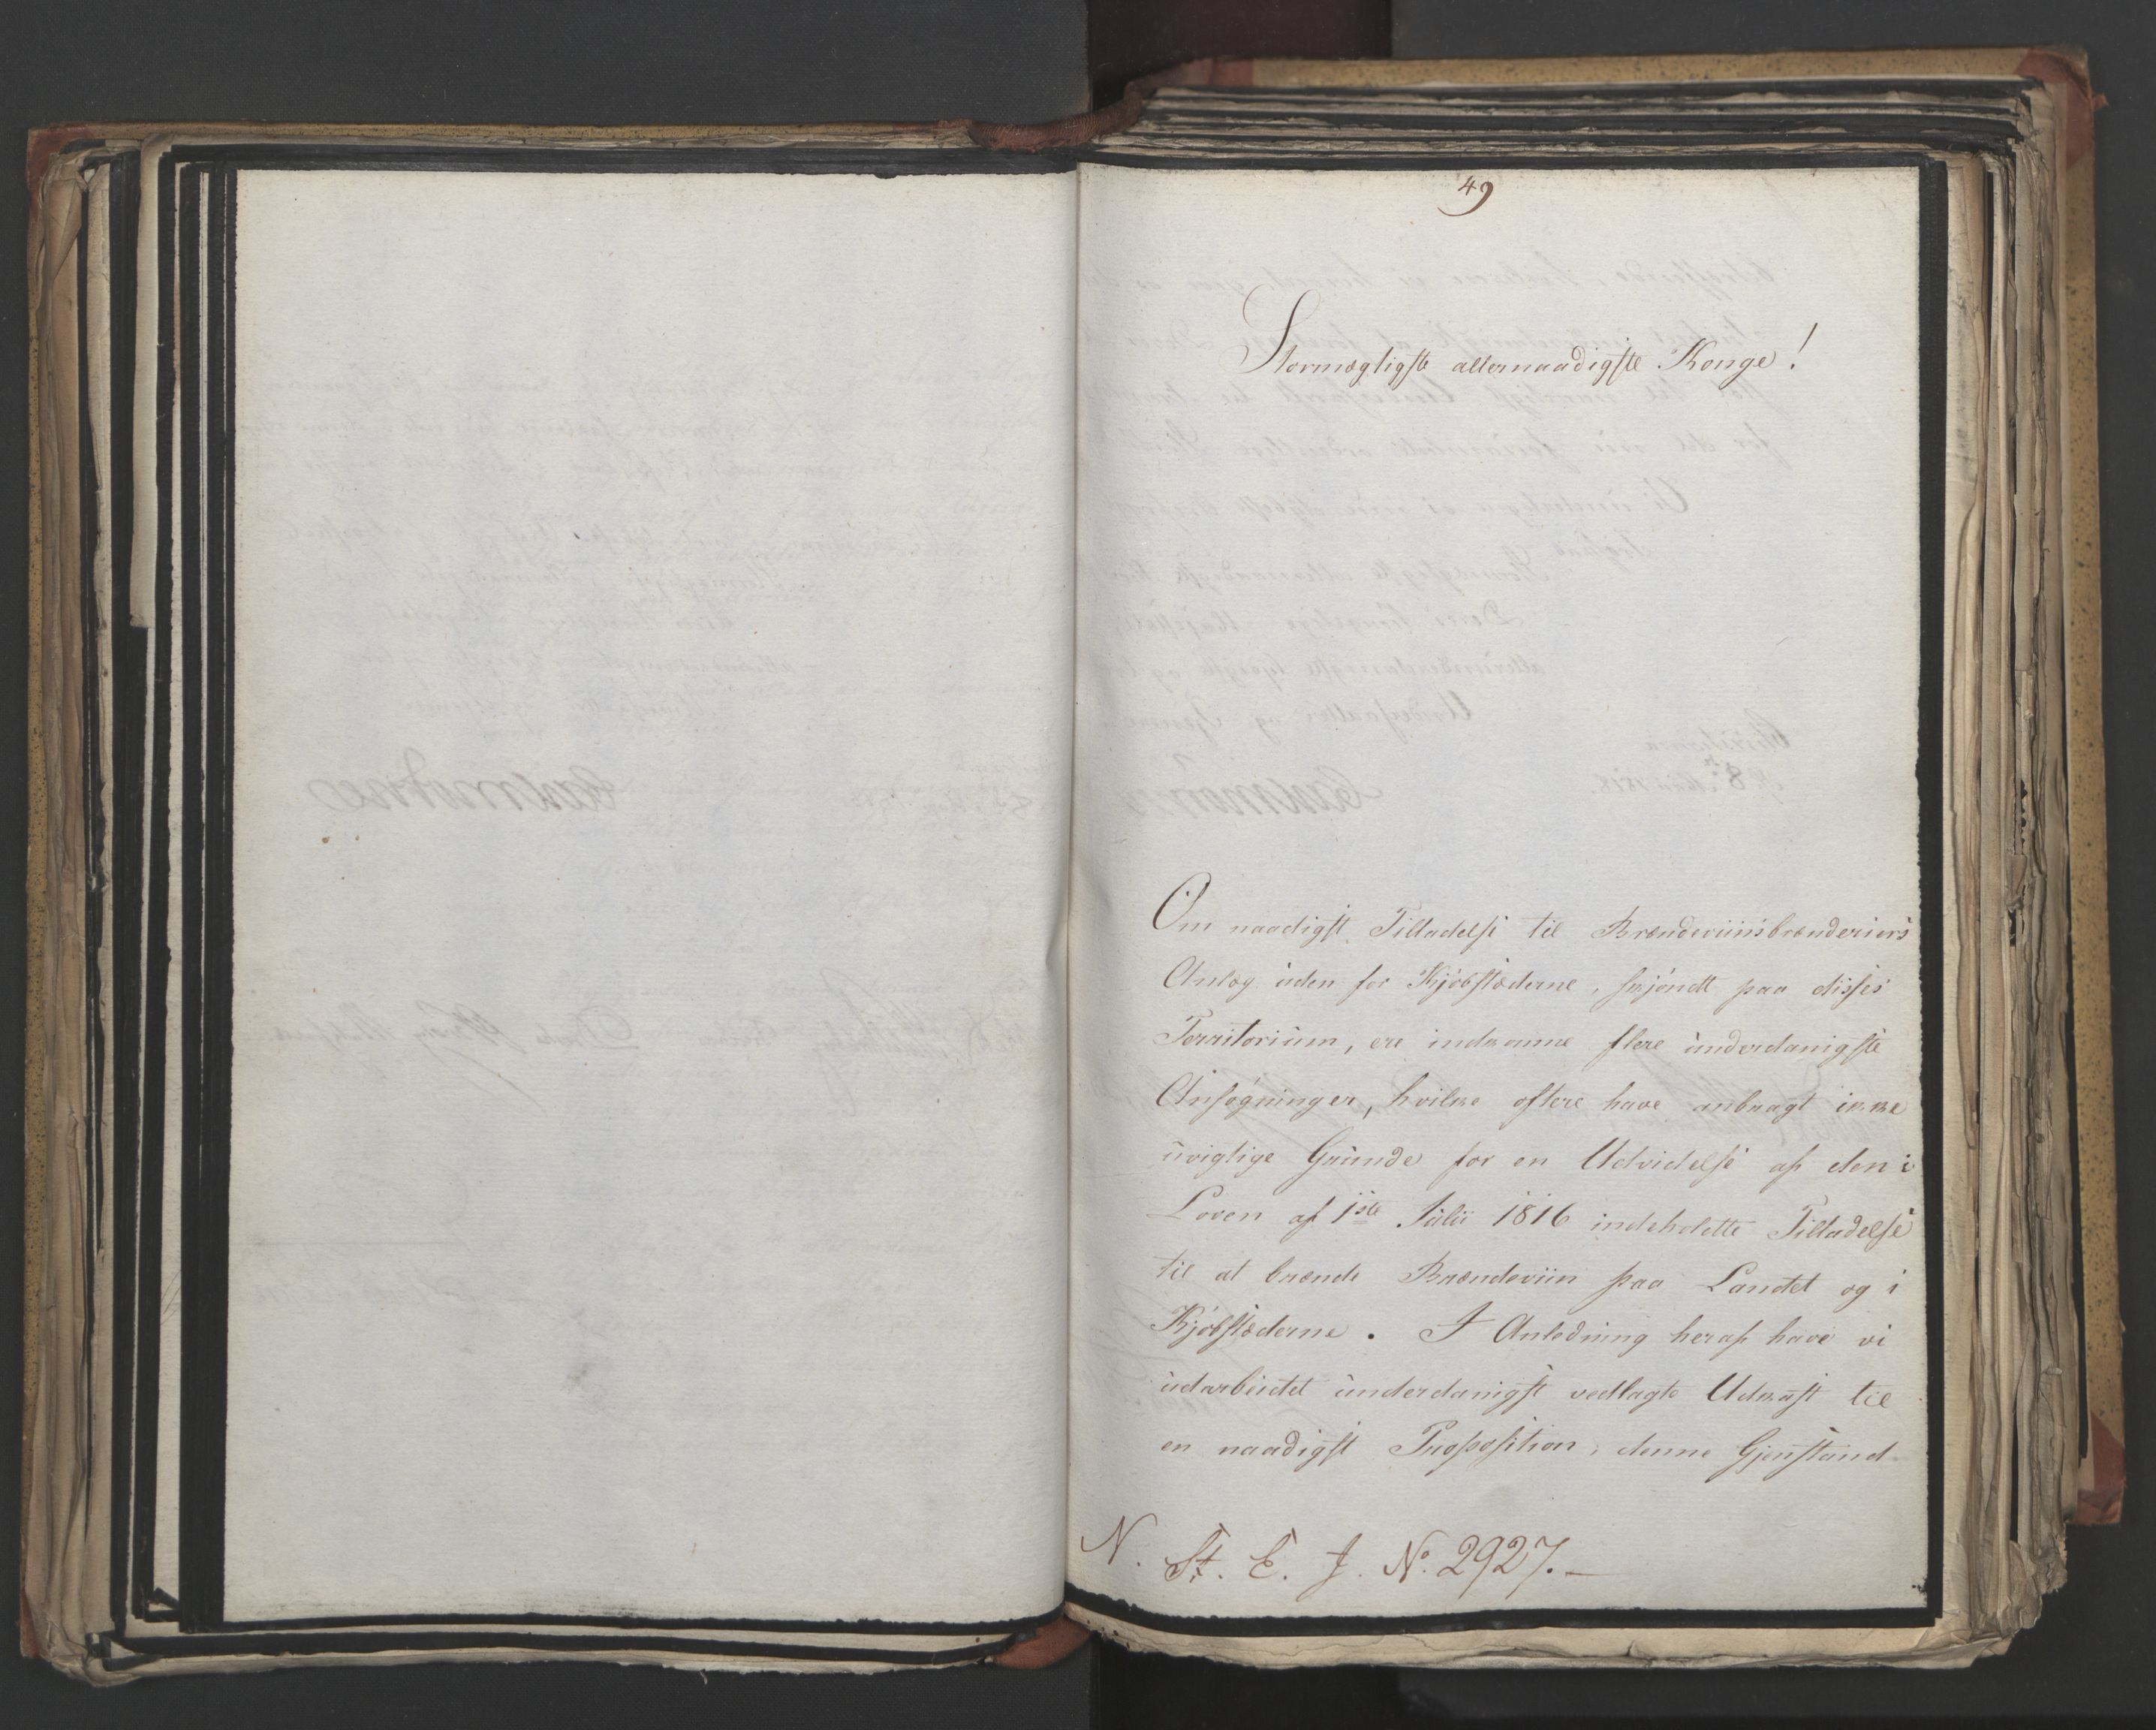 49
Stormægtigste allernaadigste Konge!
Om naadigst Tilladelse til Brændeviinsbrænderiers
Anlæg uden for Kjøbstæderne, skjøndt paa disses
Territorium, ere indkomne flere underdanigste
Ansøgninger, hvilke oftere have anbragt ikke
uvigtige Grunde for en Udvidelse af den i
Loven af 1ste Julii 1816 indeholdte Tilladelse
til at brænde Brændeviin paa Landet og i
Kjøbstæderne. I Anledning heraf have vi
udarbeidet underdanigst vedlagte Udkast til
en naadigst Proposition, denne Gjenstand
N. St. E. J. No. 2927.-